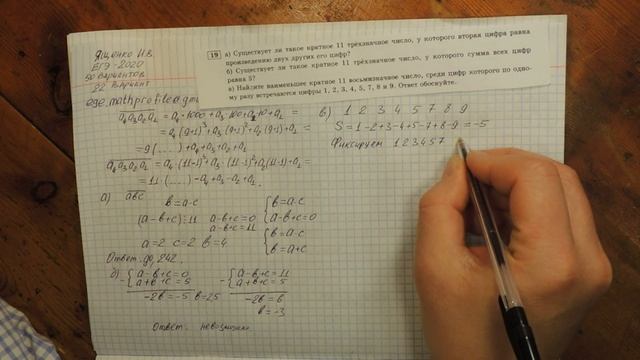 Ященко И.В.
ЕГЭ-2020
50 вариантов
22 вариант
ege.mathprofile@gm
19 а) Существует ли такое кратное 11 трёхзначное число, у которого вторая цифра равна
произведению двух других его цифр?
б) Существует ли такое кратное 11 трёхзначное число, у которого сумма всех цифр
равна 5?
в) Найдите наименьшее кратное 11 восьмизначное число, среди цифр которого по одно-
му разу встречаются цифры 1, 2, 3, 4, 5, 7, 8 и 9. Ответ обоснуйте.
a₄a₃a₂a₁ = a₄·1000+a₃·100+a₂·10+a₁ =
= a₄(9+1)³+a₃(9+1)²+a₂(9+1)+a₁ =
= 9(.....)+a₄+a₃+a₂+a₁
a₄a₃a₂a₁ = a₄·(11-1)³+a₃·(11-1)²+a₂(11-1)+a₁ =
= 11·(.....)-a₄+a₃-a₂+a₁
а) abc
b=a·c
(a-b+c)⋮11 a-b+c=0
a-b+c=11
a=2 c=2 b=4
{b=a·c
a-b+c=0
{b=a·c
b=a+c
Ответ: да, 242.
б) -{a-b+c=0
a+b+c=5
-2b=-5 b=2,5
-{a-b+c=11
a+b+c=5
-2b=6
b=-3
Ответ: невозможно.
в) 1 2 3 4 5 7 8 9
S=1-2+3-4+5-7+8-9=-5
Фиксируем 1 2 3 4 5 7